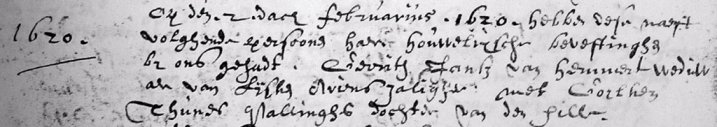 1620.
Op den .2. dach februarius .1620. hebben dese naest
volghende persoons haer houwelijcksche bevestingh
by ons gehadt. Gerrith Jansz van Hemmert weduw
aer van Lijske Ariens zaligher met Gorthen
Thunes Pallinghs dochter van den hille.